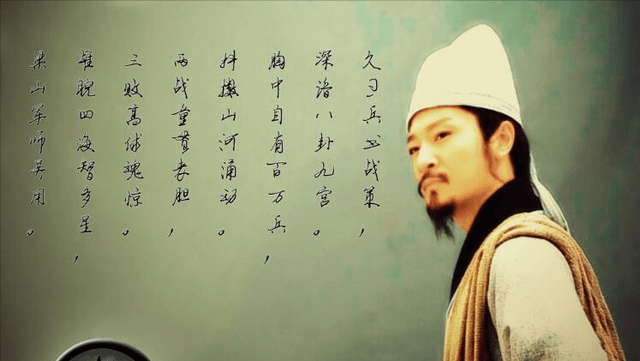 久习兵书战策，
深谙八卦九宫。
胸中自有百万兵，
抖擞山河涌动。
两战童贯丧胆，
三败高俅魂惊。
雄睨四海智多星，
梁山军师吴用。